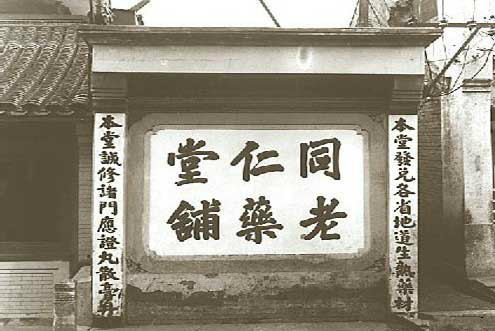 同仁堂
老藥舖
本堂發兌各省地道生熟藥材
本堂誠修諸門應證丸散膏丹